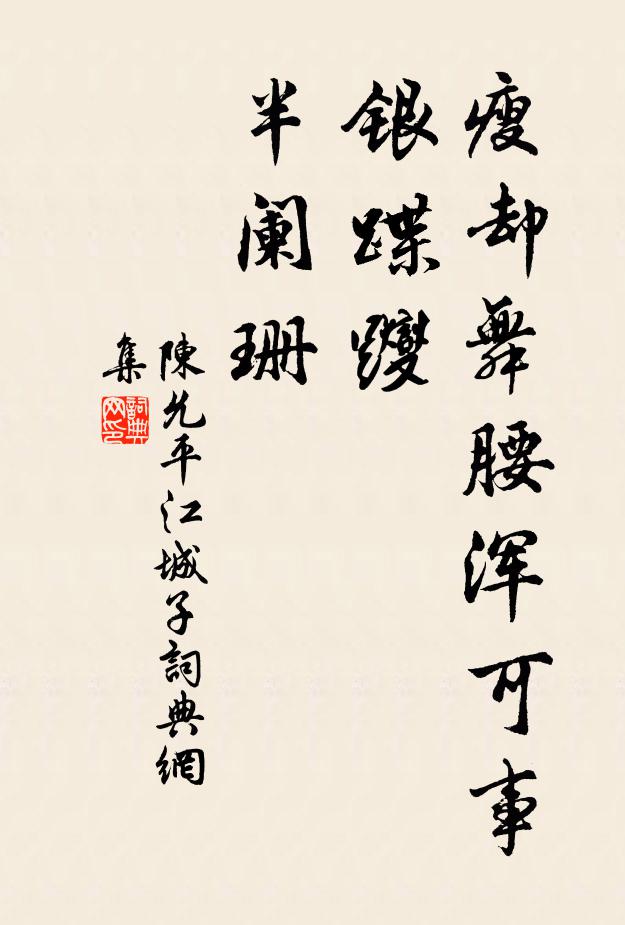 瘦却舞腰浑可事
银蹀躞
半阑珊
陳允平江城子詞典網
集
詞典网印